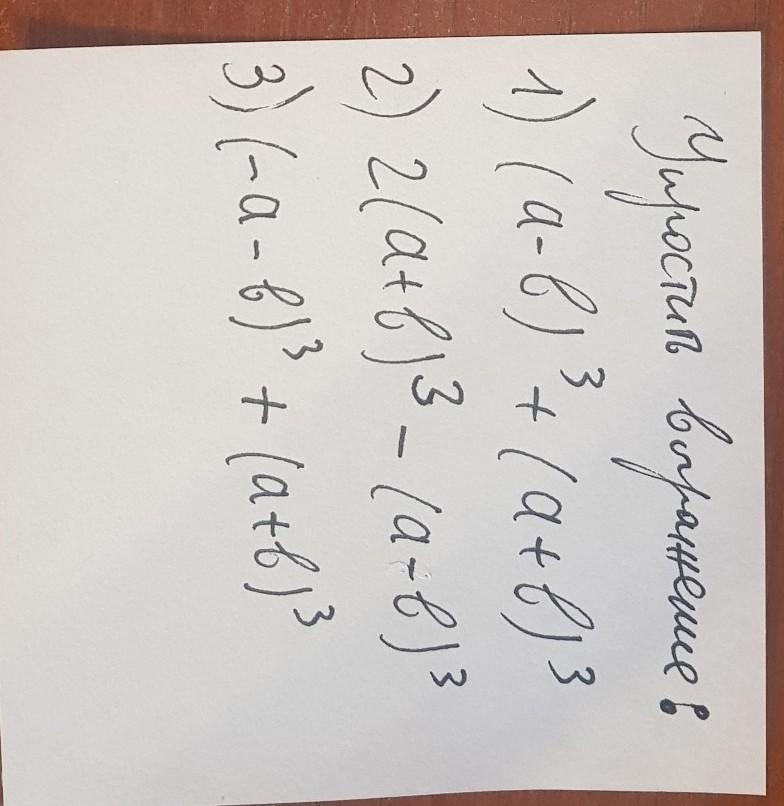 Упростить выражение:
1) (a-b)³ + (a+b)³
2) 2(a+b)³ - (a-b)³
3) (-a-b)³ + (a+b)³